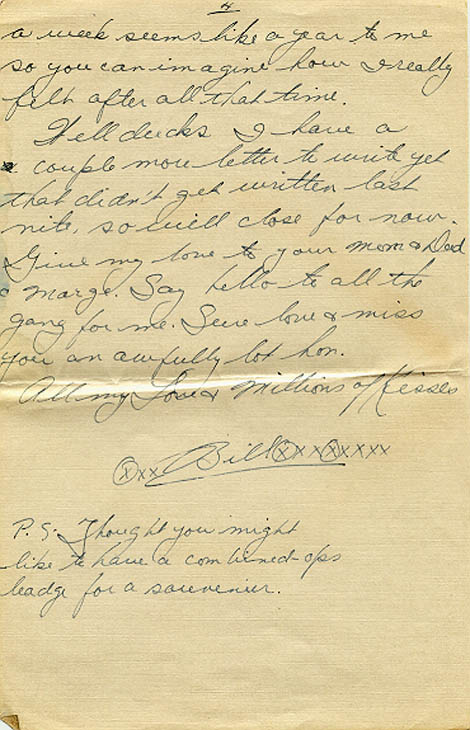 4
a week seems like a year to me
so you can imagine how I really
felt after all that time.
Well ducks I have a
couple more letter to write yet
that didn't get written last
nite, so will close for now.
Give my love to your Mom & Dad
& Marge. Say hello to all the
gang for me. Sure love & miss
you an awfully lot hon.
All my Love & Millions of Kisses
ⓧxx Bill ⓧxxⓧxxxx
P.S. Thought you might
like to have a combined-ops
badge for a souvenier.